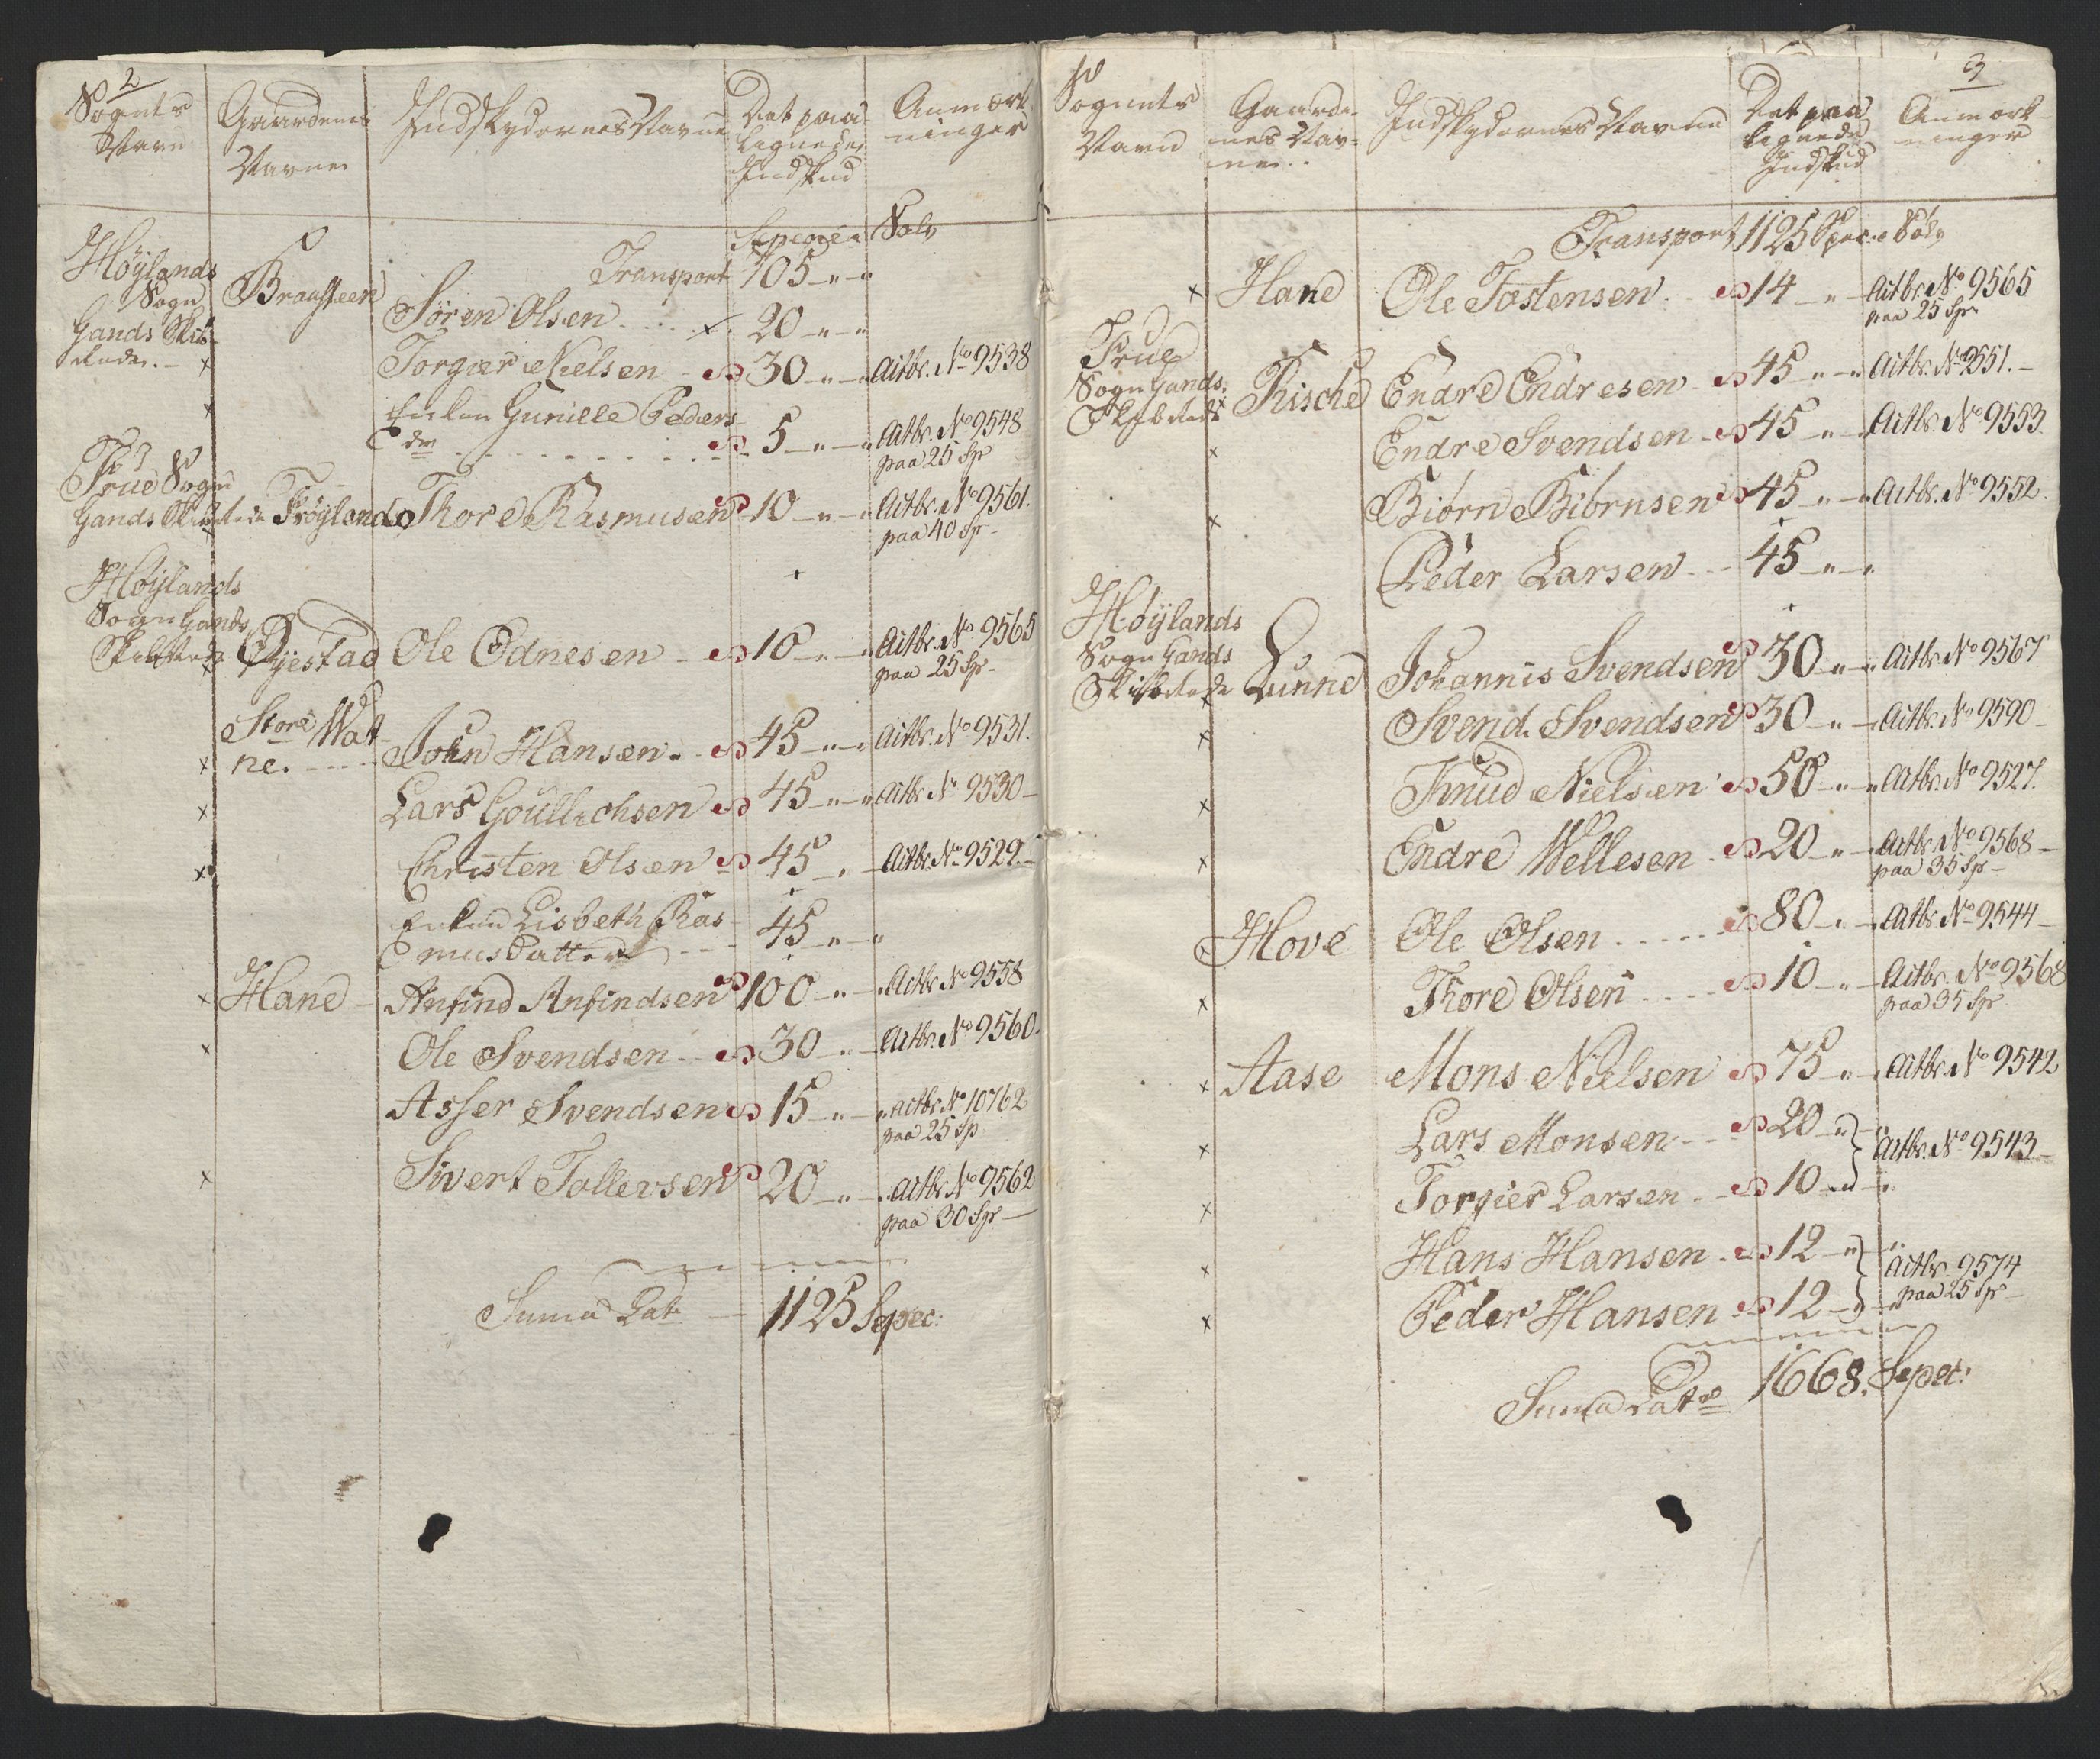 2
Sognets Navn
Gaardenes Navne
Indskydernes Navne
Det paa lignede Indskud
Anmærkninger
Specie Sølv
Transport 705 „ „
Høylands Sogn Gands Skibrede. Braasteen Søren Olsen 20 „ „
× Torgier Nielsen 30 „ „ Aitbr. No 9538
× Enken Gunille Peders dr 5 „ „ Aitbr. No 9548 paa 25 Sp
True Sogn Gands Skibrede Frøyland Thore Rasmusen 10 „ „ Aitbr. No 9561. paa 40 Sp
Høylands Sogn Gands Skibrede Øyestad Ole Ednesen 10 „ „ Aitbr. No 9565 paa 25 Sp
× Store Watne. John Hansen 45 „ „ Aitbr. No 9531.
× Lars Goullichsen 45 „ „ Aitbr. No 9530
× Christen Olsen 45 „ Aitbr. No 9529.
Enken Lisbeth Rasmusdatter 45 „ „
× Hane Anfind Anfindsen 100 „ „ Aitbr. No 9558
× Ole Svendsen 30 „ „ Aitbr. No 9560.
Asser Svendsen 15 „ „ Aitbr. No 10762 paa 25 Sp
× Sivert Tollevsen 20 „ „ Aitbr. No 9562 paa 30 Sp
Suma Lat 1125 Spec:
3
Sognets Navn
Gaardenes Navne
Indskydernes Navne
Det paa lignede Indskud
Anmærkninger
Transport 1125 Spec. Sølv
× Hane Ole Tostensen 14 „ Aitbr. No 9565 paa 25 Sp
True Sogn Gands Skibrede Rische Endre Endresen 45 „ „ Aitbr. No 9551.
× Endre Svendsen 45 „ „ Aitbr. No 9553.
× Biørn Biørnsen 45 „ „ Aitbr. No 9552.
Peder Larsen 45 „ „
Høylands Sogn Gands Skibrede × Lunne Johannis Svendsen 30 „ „ Aitbr. No 9567
× Svend Svendsen 30 „ „ Aitbr. No 9590
× Knud Nielsen 50 „ „ Aitbr. No 9527.
× Endre Wellesen 20 „ „ Aitbr. No 9568 paa 35 Sp
× Hove Ole Olsen 80 „ Aitbr. No 9544
× Thore Olsen 10 „ „ Aitbr. No 9568 paa 35 Sp
× Aase Mons Nielsen 75 „ „ Aitbr. No 9542
× Lars Monsen 20 „ „
Aitbr. No 9543
× Torgier Larsen 10 „ „
× Hans Hansen 12 „ „
Aitbr. 9574 paa 25 Sp
× Peder Hansen 12 „ „
Suma Lats 1668. Spec: